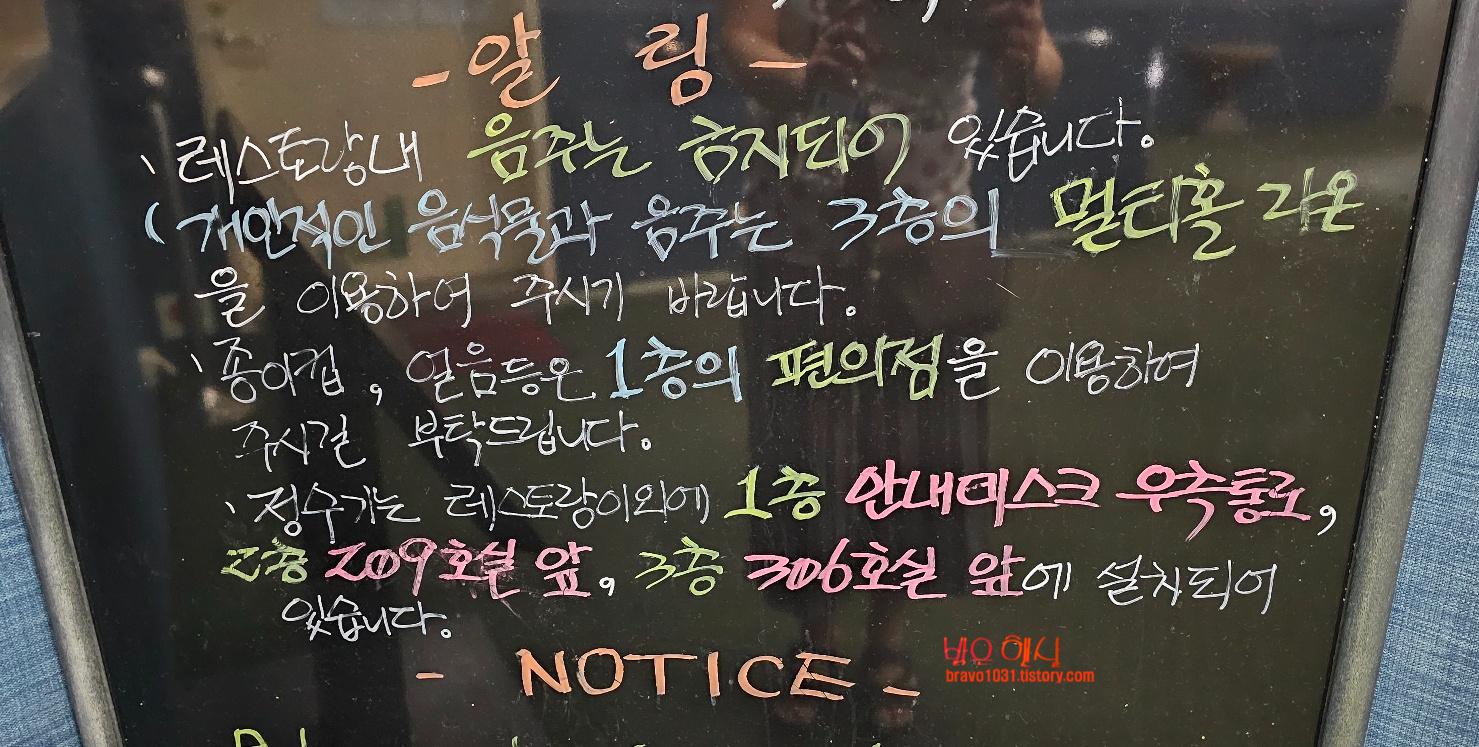 - 알 림 -
、레스토랑내 음주는 금지되어 있습니다.
(개인적인 음식물과 음주는 3층의 멀티홀 라온
을 이용하여 주시기 바랍니다.
、종이컵, 얼음등은 1층의 편의점을 이용하여
주시길 부탁드립니다.
、정수기는 레스토랑이외에 1층 안내데스크 우측통로,
2층 209호실 앞, 3층 306호실 앞에 설치되어
있습니다.
- NOTICE -
bravo1031.tistory.com